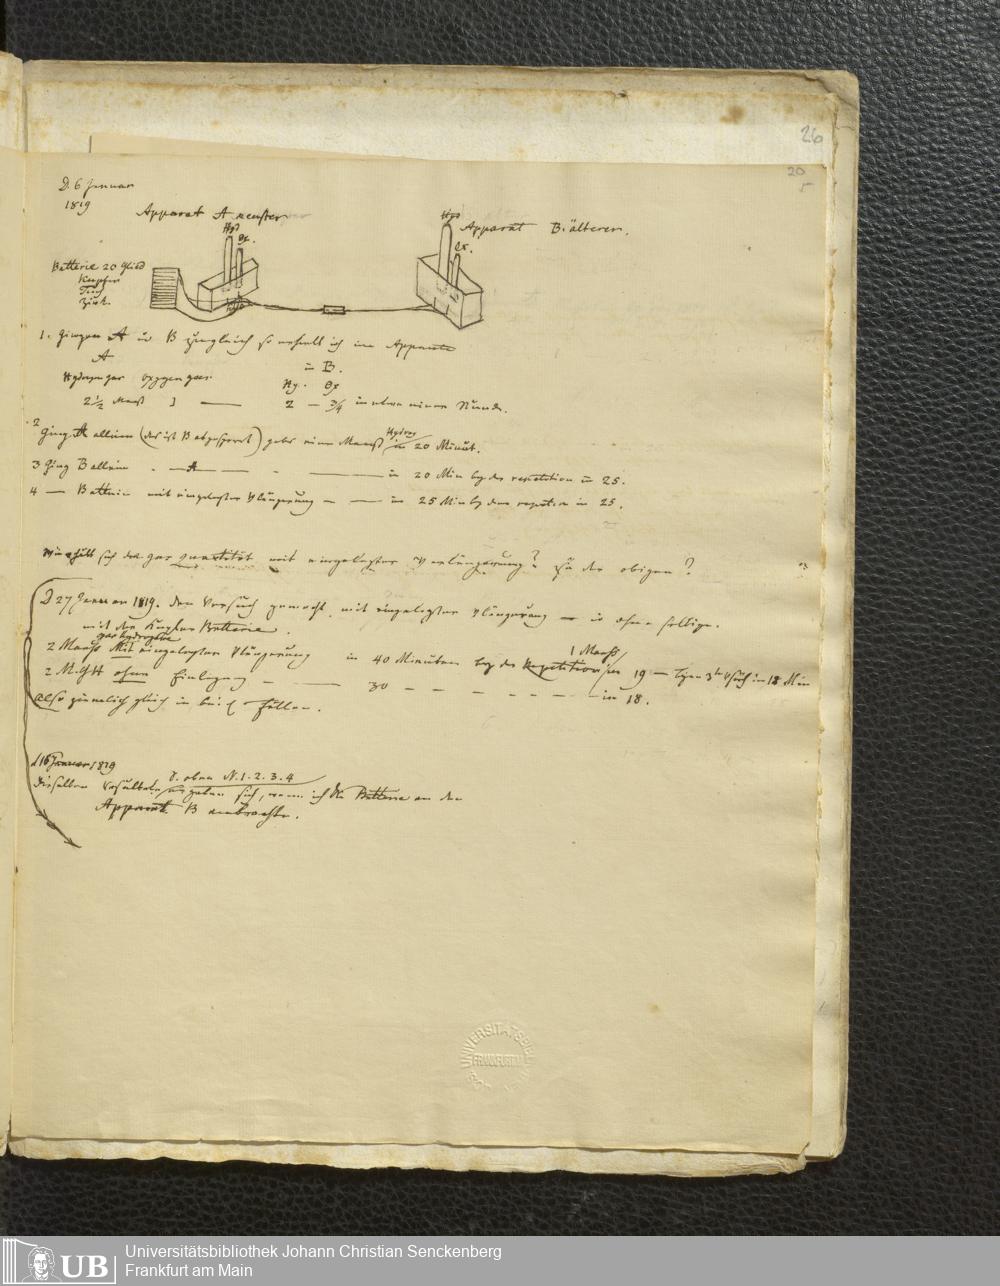 26
20
5
D. 6 Januar
1819
Apparat A neuster
Apparat B. älterer.
Hyd
Ox.
Hyd
Ox.
Batterie 20 Glied
Kupfer
Tuch
Zink.
1. Gingen A u B zugleich so erhielt ich im Apparate
A
in B.
Hydrogen gas oxygen gas
Hy. Ox
2 ½ Maaß 1 — 2 — ¾ in etwa einer Stunde.
2 Ging A allein (das ist B abgesperrt) gabs einen Maaß Hydrog in 20 Minut.
3 Ging B allein — A — — in 20 Min bey der repetition in 25.
4 — B allein mit eingelegter Vlängerung — — in 25 Min bey der repetition in 25.
Wie verhält sich das gas quantität mit eingelegter Verlängerung? zu der obigen?
D 27 Januar 1819. den Versuch gemacht, mit eingelegter Vlängerung — u ohne selbige.
mit der Kupfer Batterie.
gas hydrogène
1 Maaß
2 Maaß Mit eingelegter Vlängerung in 40 Minuten bey der Repetition in 19 — 3 in 18 Min
2 M. G H ohne Einlegung — — 30 — — — — in 18.
also ziemlich gleich in beiden Fällen.
d 16 Januar 1819
S. oben N. 1. 2. 3. 4
Dieselben Resultate ergaben sich, wenn ich die Batterie an den
Apparat B anbrachte.
UNIVERSITÄTSBIBLIOTHEK
FRANKFURT
UB
Universitätsbibliothek Johann Christian Senckenberg
Frankfurt am Main